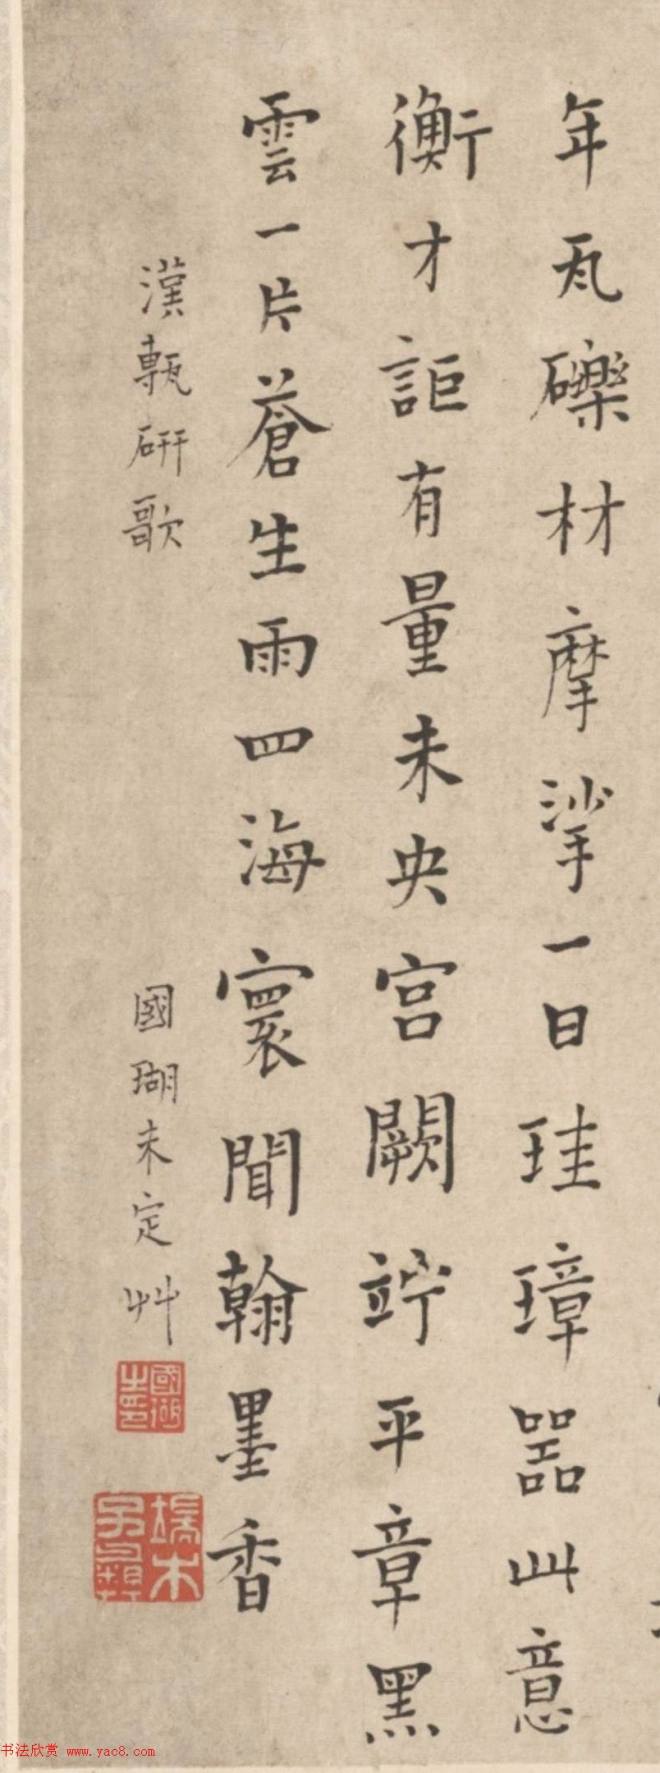 年瓦礫材摩挲一日珪璋器此意
衡才詎有量未央宮闕竚平章黑
雲一片蒼生雨四海寰聞翰墨香
漢甎研歌
國瑚未定艸
國瑚之印
書法欣赏 www.yac8.com